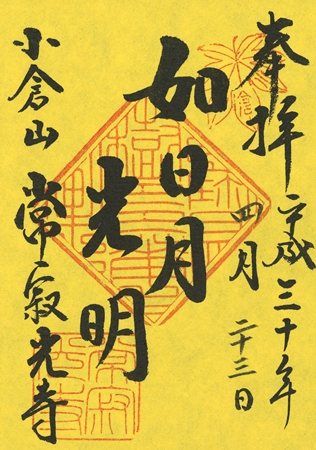 奉拝
平成三十年
四月
二十三日
如日月
光明
小倉山
常寂光寺